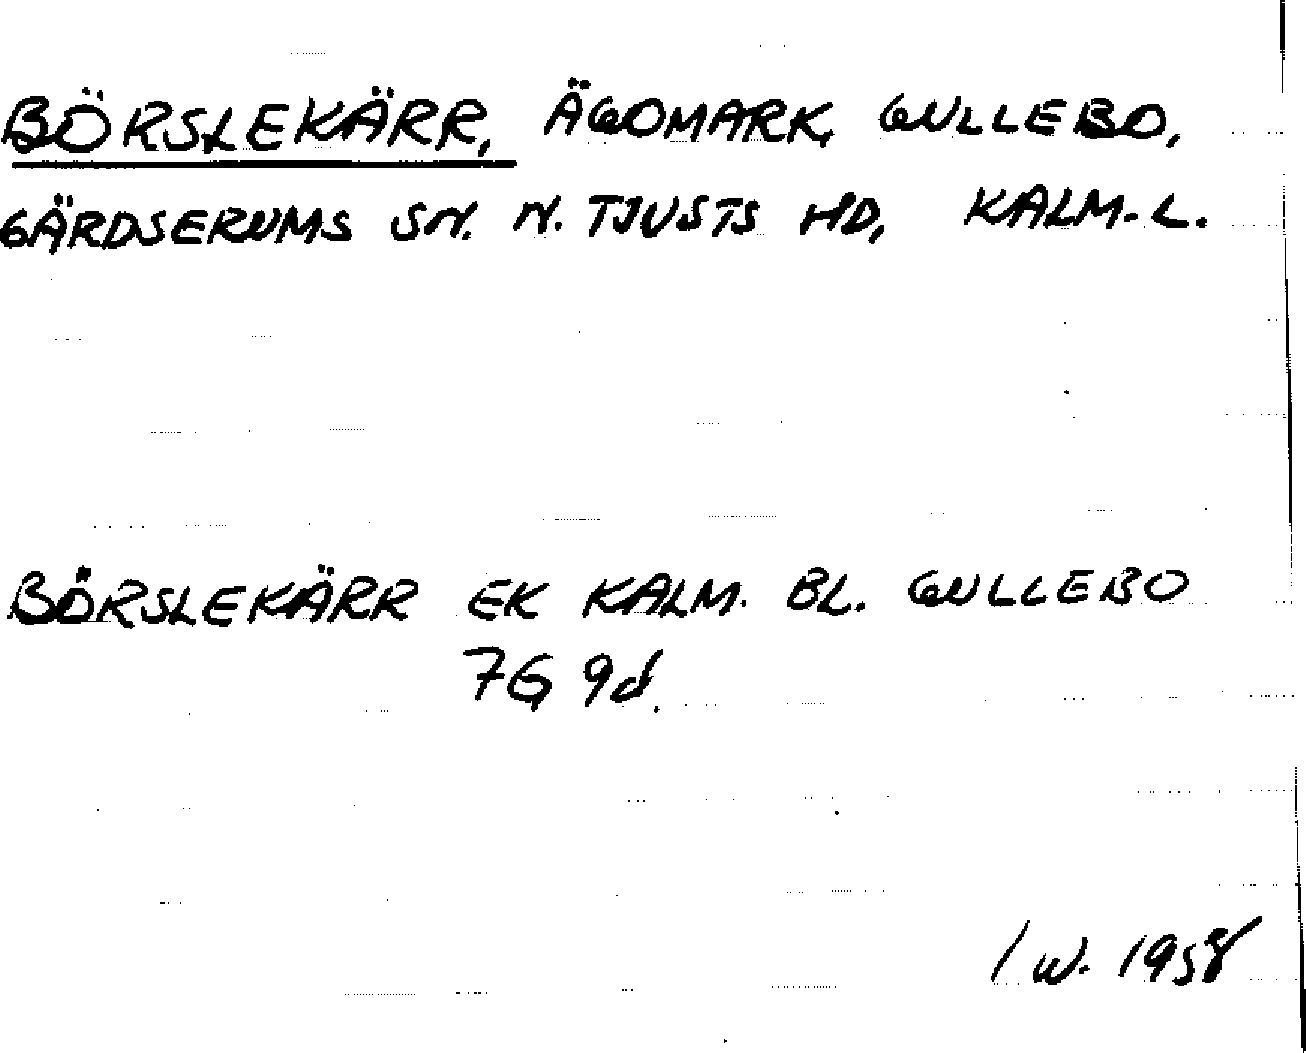 BÖRSLEKÄRR, ÄGOMARK, GULLEBO,
GÄRDSERUMS SN. N. TJUSTS HD, KALM. L.
BÖRSLEKÄRR EK KALM. BL. GULLEBO
7G 9d.
/ W. 1958